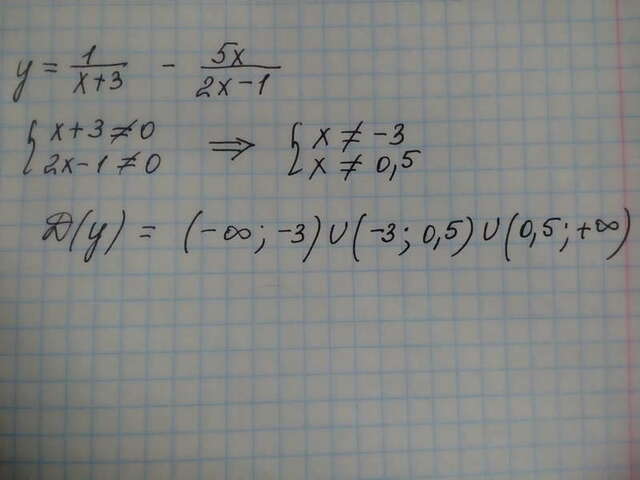 y = 1/(x+3) - 5x/(2x-1)
{ x+3 ≠ 0 ⇒ { x ≠ -3
2x-1 ≠ 0 x ≠ 0,5
D(y) = (-∞; -3) ∪ (-3; 0,5) ∪ (0,5; +∞)